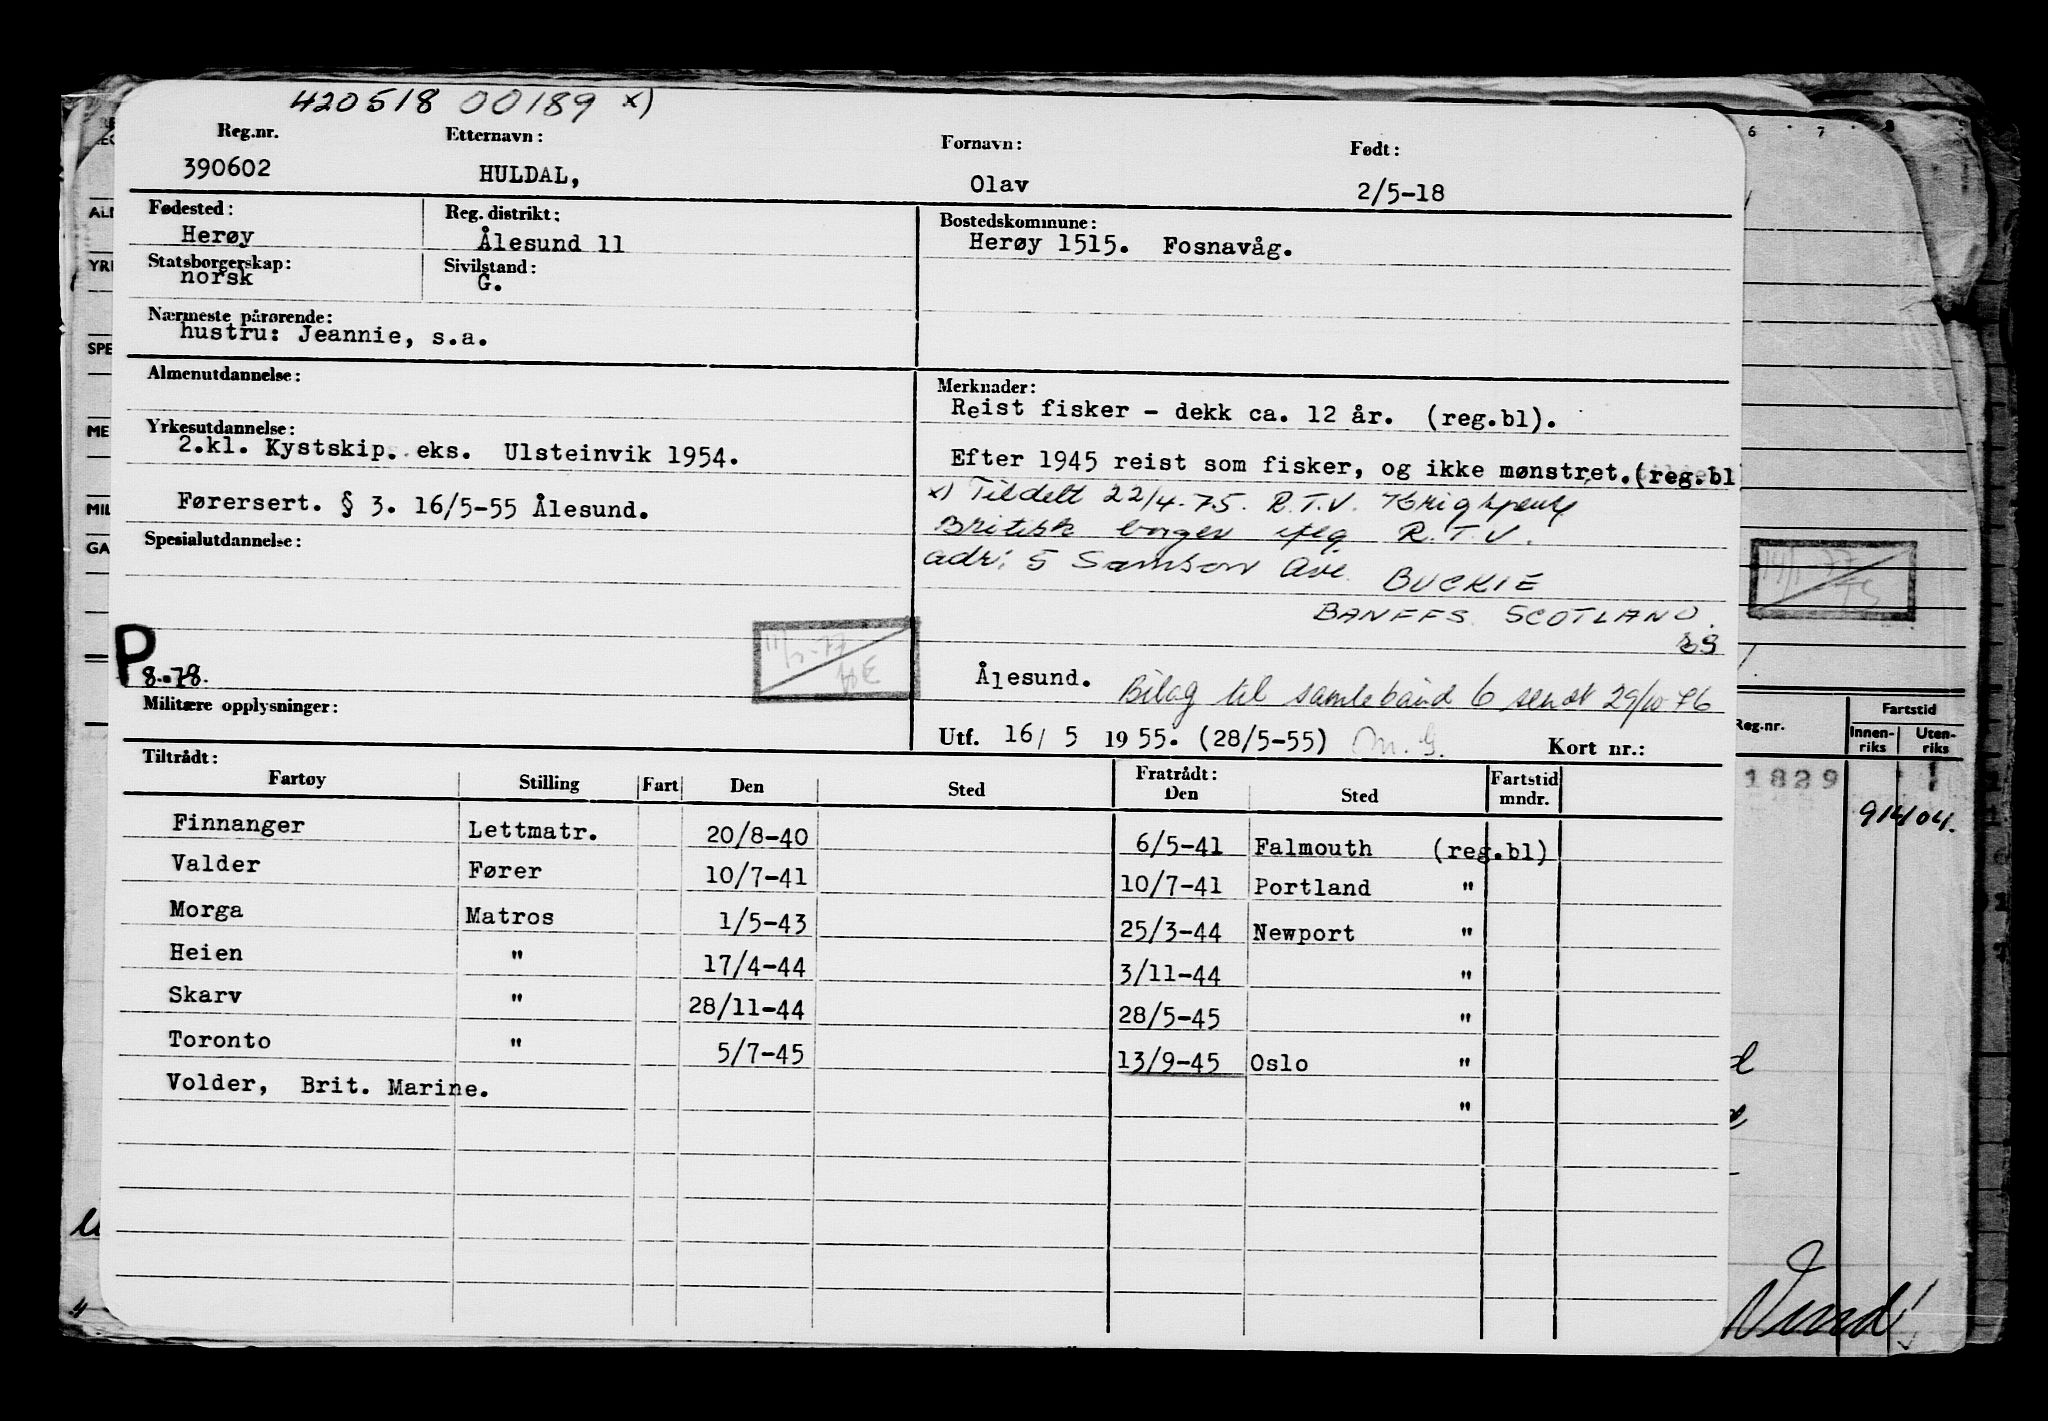 420518 00189 x)
Reg.nr. Etternavn: Fornavn: Født:
390602 HULDAL, Olav 2/5-18
Fødested: Reg. distrikt: Bostedskommune:
Herøy Ålesund 11 Herøy 1515. Fosnavåg.
Statsborgerskap: Sivilstand:
norsk G.
Nærmeste pårørende:
hustru: Jeannie, s.a.
Almenutdannelse: Merknader:
Reist fisker - dekk ca. 12 år. (reg.bl).
Yrkesutdannelse:
2.kl. Kystskip. eks. Ulsteinvik 1954.
Efter 1945 reist som fisker, og ikke mønstret. (reg.bl
Førersert. § 3. 16/5-55 Ålesund.
x) Tildelt 22/4-75. R.T.V.
Britisk borger iflg R.T.V.
Spesialutdannelse:
adr: 5 Samson Ave. BUCKIE
BANFFS. SCOTLAND.
P
8.-78.
Ålesund. Bilag til samlebånd 6 sendt 29/10-76
Militære opplysninger:
Utf. 16/ 5 1955. (28/5-55) Kort nr.:
Tiltrådt: Fratrådt:
Fartøy Stilling Fart Den Sted Den Sted Fartstid mndr.
Finnanger Lettmatr. 20/8-40 6/5-41 Falmouth (reg.bl)
Valder Fører 10/7-41 10/7-41 Portland "
Morga Matros 1/5-43 25/3-44 Newport "
Heien " 17/4-44 3/11-44 "
Skarv " 28/11-44 28/5-45 "
Toronto " 5/7-45 13/9-45 Oslo "
Volder, Brit. Marine. "
6 7 8
ALM
YRK
SPE
ME
MIL
GA
Reg.nr. Fartstid
Innen-riks Uten-riks
1829